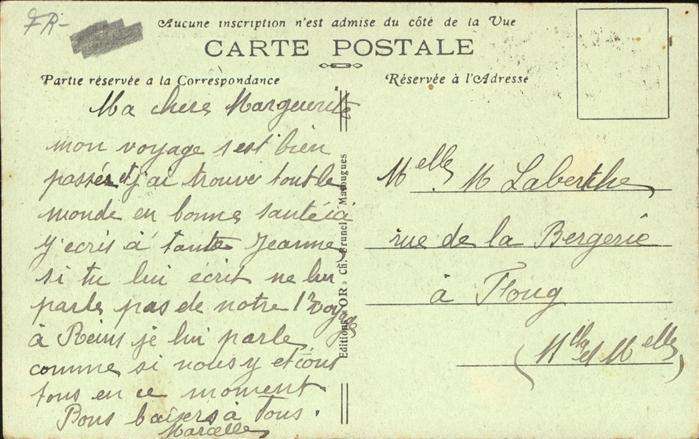 FR-
Aucune inscription n'est admise du côté de la Vue
CARTE POSTALE
Partie réservée a la Correspondance
Réservée à l'Adresse
Ma chere Marguerite
mon voyage s'est bien
passér et j'ai trouver tout le
monde en bonne santé ici
j'ecris à tante Jeanne
si tu lui écrit ne lui
parle pas de notre 1r voyage
à Reims je lui parle
comme si nous y etions
tous en ce moment
Bons baisers à tous.
Marcelle
Editions "OR", Ch. Brunel,
Melle M Laberthe
rue de la Bergerie
à Foug
(Mthe et Melle)